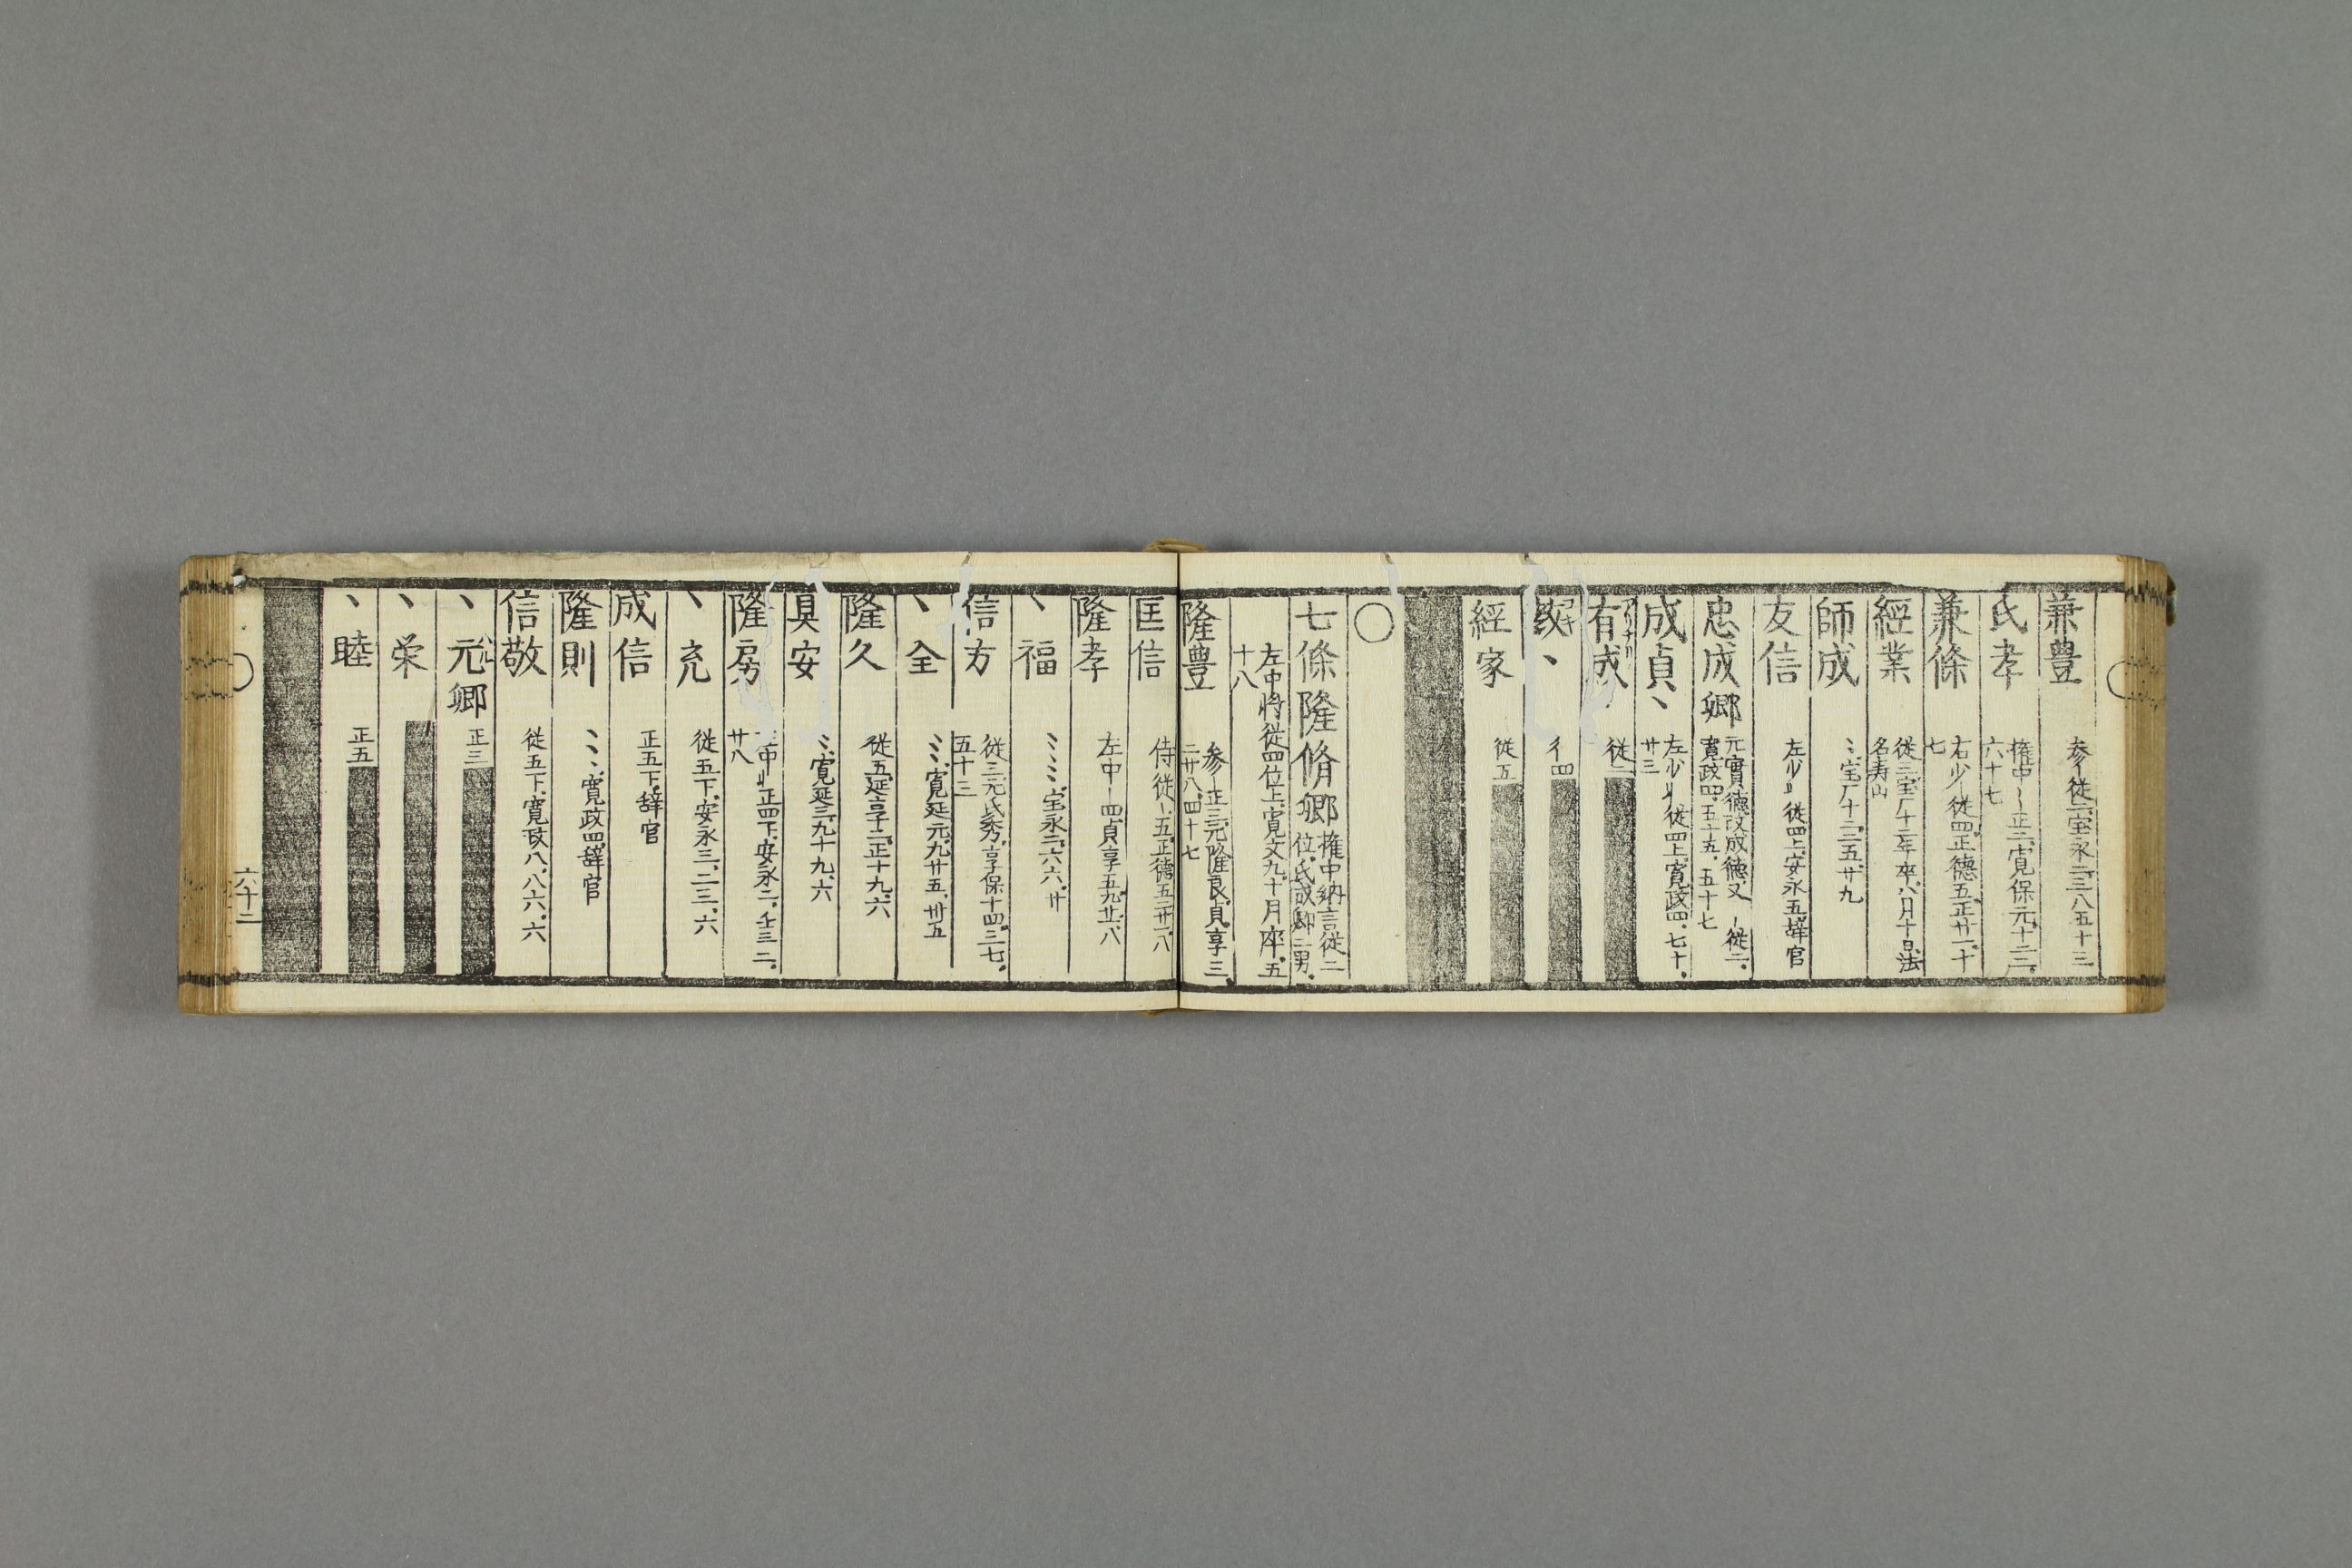 兼豊 参〡従二、宝永二、三、八、五十三
氏孝 権中〡正二、寛保元、十二、二、
六十七
兼條 右少〡従四、正徳五、正廿一、十
七
經業 従三、宝厂十二年卒、八月十日、法
名寿山
師成 〻宝厂十二、二、五、廿九
友信 左少〢従四上、安永五、辞官
忠成卿 元實徳、改成徳、又〡従二、
寛政四、五十五、五十七
成貞丶 左少〢従四上、寛政四、七、十、
廿三
有成 従二
丶
經家 従五
〇
七條隆脩卿 権中納言従二
位、氏成卿二男、
左中将従四位上、寛文九、十月卒、五
十八
隆豊 参〡正三、元隆良、貞享三、
二、廿八、四十七
匡信 侍従〡五、正徳五、二、廿一、八
隆孝 左中〡四、貞享五、九、廿一、八
丶福 〻〻宝永二、六、六、廿
信方 従三、元氏秀、享保十四、三、七、
五十三
丶全 〻〻寛延元、九、廿五、卅五
隆久 従五、延享二、正十九、六
具安 〻寛延三、九、十九、六
隆房 中〢正四下、安永二、壬三、二、
廿八
丶充 従五下、安永三、二、三、六
成信 正五下、辞官
隆則 〻〻寛政四、辞官
信敬 従五下、寛政八、八、六、六
丶元卿 正三
丶栄
丶睦 正五
六十二